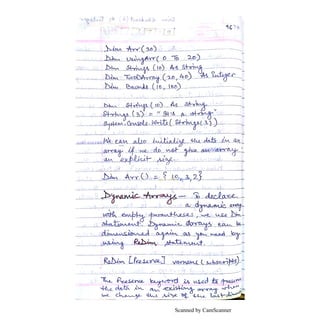 Dim Arr(30)
Dim usingArr(0 To 20)
Dim Strings(10) As String
Dim TwoDArray(20,40) As Integer
Dim Bounds(10,100)
Dim Strings(10) As String
Strings(3) = "It's a string"
System.Console.Write(Strings(3))
We can also initialize the data in an
array if we do not give array
an explicit size
Dim Arr() = {10,3,2}
Dynamic Arrays - To declare
a dynamic array
with empty parantheses, we use Dim
statement. Dynamic arrays can be
dimensioned again as you need by
using ReDim statement.
ReDim [Preserve] varname(subscripts)
The Preserve keyword is used to preserve
the data in an existing array when
we change the size of the last dim
Scanned by CamScanner